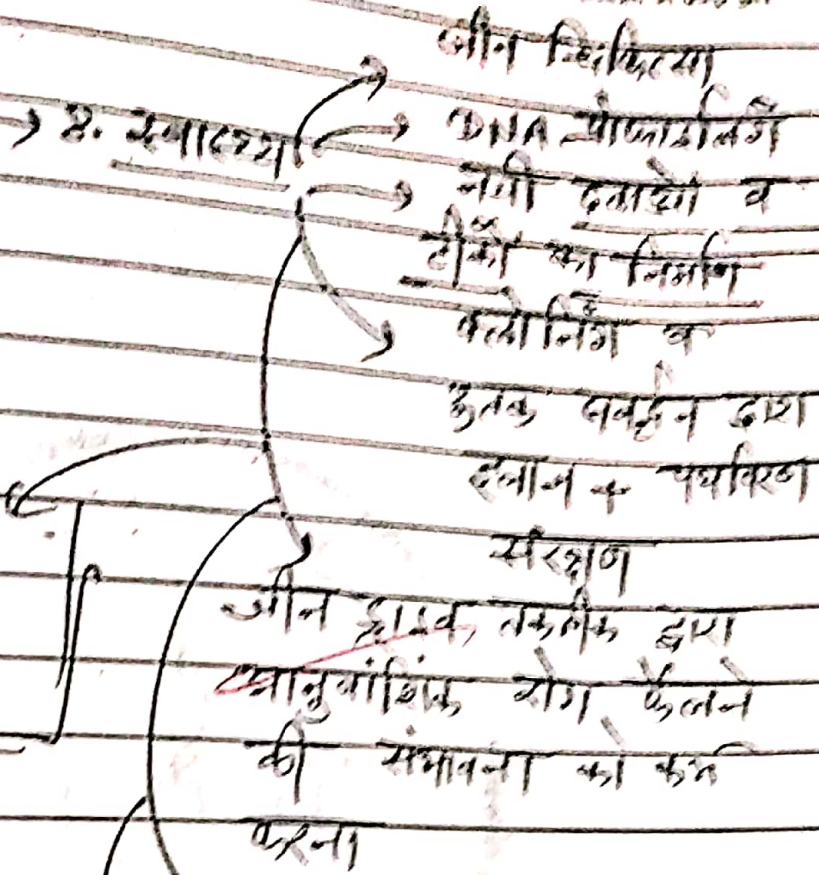 जीन चिकित्सा
→ 8. स्वास्थ्य → DNA प्रोफाइलिंग
→ नयी दवाओं व
टीकों का निर्माण
क्लोनिंग व
द्वारा
इलाज + पर्यावरण
संरक्षण
जीन ड्राइव तकनीक द्वारा
आनुवांशिक रोग फैलने
की संभावना को कम
करना